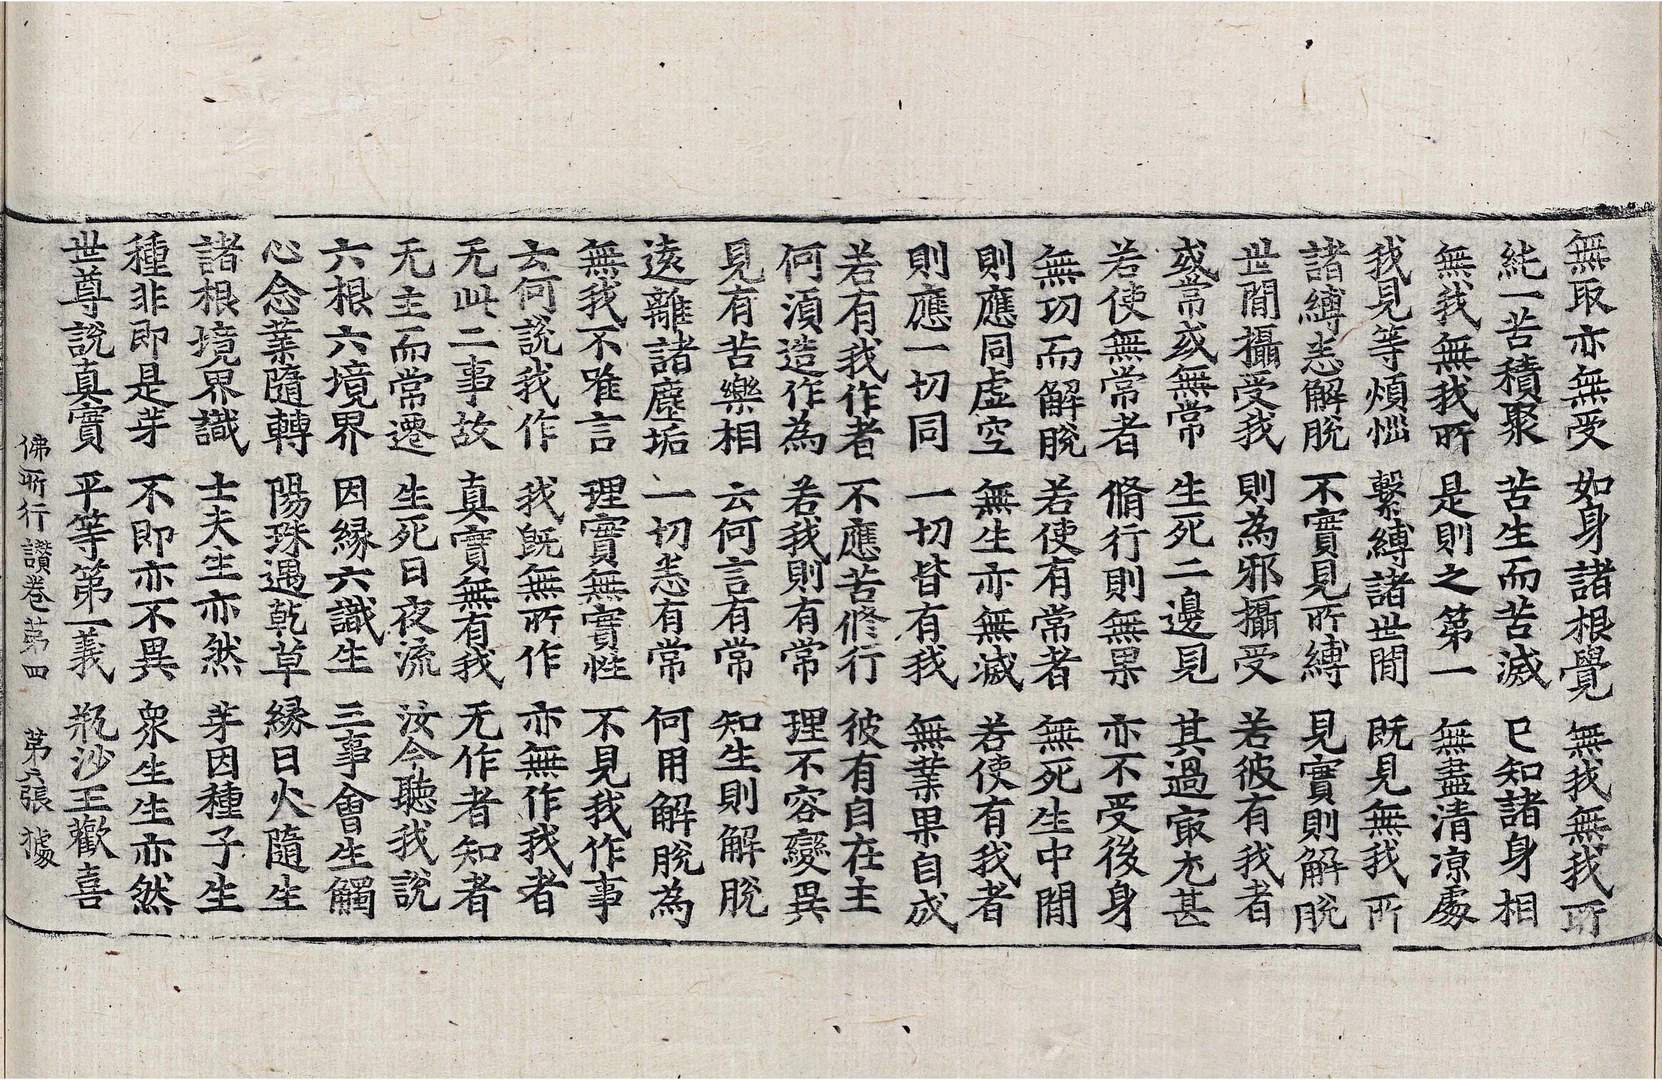 無取亦無受 如身諸根覺 無我無我所
純一苦積聚 苦生而苦滅 已知諸身相
無我無我所 是則之第一 無盡清凉處
我見等煩惱 繫縛諸世間 既見無我所
諸縛悉解脫 不實見所縛 見實則解脫
世間攝受我 則為邪攝受 若彼有我者
或常或無常 生死二邊見 其過寂尤甚
若使無常者 脩行則無果 亦不受後身
無功而解脫 若使有常者 無死生中間
則應同虛空 無生亦無滅 若使有我者
則應一切同 一切皆有我 無業果自成
若有我作者 不應苦修行 彼有自在主
何須造作為 若我則有常 理不容變異
見有苦樂相 云何言有常 知生則解脫
遠離諸塵垢 一切悉有常 何用解脫為
無我不唯言 理實無實性 不見我作事
云何說我作 我既無所作 亦無作我者
无此二事故 真實無有我 无作者知者
无主而常遷 生死日夜流 汝今聽我說
六根六境界 因緣六識生 三事會生觸
心念業隨轉 陽珠遇乾草 緣日火隨生
諸根境界識 士夫生亦然 芽因種子生
種非即是芽 不即亦不異 衆生生亦然
世尊說真實 平等第一義 瓶沙王歡喜
佛所行讚卷第四 第六張 據